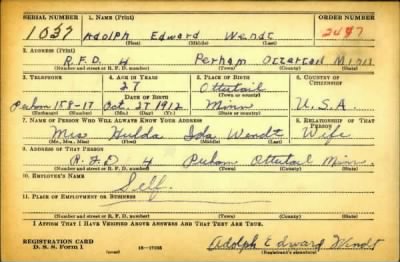 SERIAL NUMBER 1. NAME (Print) ORDER NUMBER
1037 Adolph Edward Wendt 2497
(First) (Middle) (Last)
2. ADDRESS (Print)
R.F.D. 4 Perham Ottertail Minn
(Number and street or R. F. D. number) (Town) (County) (State)
3. TELEPHONE 4. AGE IN YEARS 5. PLACE OF BIRTH 6. COUNTRY OF CITIZENSHIP
27 Ottertail
DATE OF BIRTH (Town or county)
Perham 158-17 Oct. 27 1912 Minn U.S.A.
(Exchange) (Number) (Mo.) (Day) (Yr.) (State or country)
7. NAME OF PERSON WHO WILL ALWAYS KNOW YOUR ADDRESS 8. RELATIONSHIP OF THAT PERSON
Mrs Hulda Ida Wendt Wife
(Mr., Mrs., Miss) (First) (Middle) (Last)
9. ADDRESS OF THAT PERSON
R.F.D 4 Perham Ottertail Minn.
(Number and street or R. F. D. number) (Town) (County) (State)
10. EMPLOYER'S NAME
Self.
11. PLACE OF EMPLOYMENT OR BUSINESS
(Number and street or R. F. D. number) (Town) (County) (State)
I AFFIRM THAT I HAVE VERIFIED ABOVE ANSWERS AND THAT THEY ARE TRUE.
REGISTRATION CARD
D. S. S. Form 1 (over) Adolph Edward Wendt
(Registrant's signature)